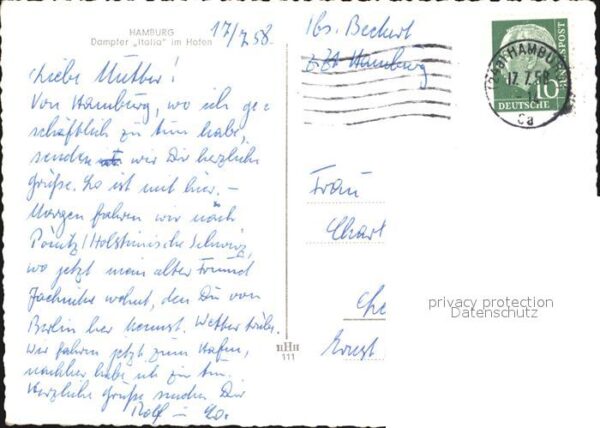 HAMBURG
Dampfer „Italia" im Hafen
17/7.58.
Liebe Mutter!
Von Hamburg, wo ich ge
schäftlich zu tun habe,
senden wir Dir herzliche
Grüße. Lo ist mit hier. –
Morgen fahren wir nach
Pönitz/Holsteinische Schweiz,
wo jetzt mein alter Freund
wohnt, den Du von
Berlin her kennst. Wetter trübe.
Wir fahren jetzt zum Hafen,
nachher habe ich zu tun.
Herzliche Grüße senden Dir
Rolf u Lo.
Abs. Beckert
z.Zt Hamburg
HAMBU
17.7.58
10
DEUTSCHE
POST
Frau
Char
Che
Ernst
privacy protection
Datenschutz
HHH
111